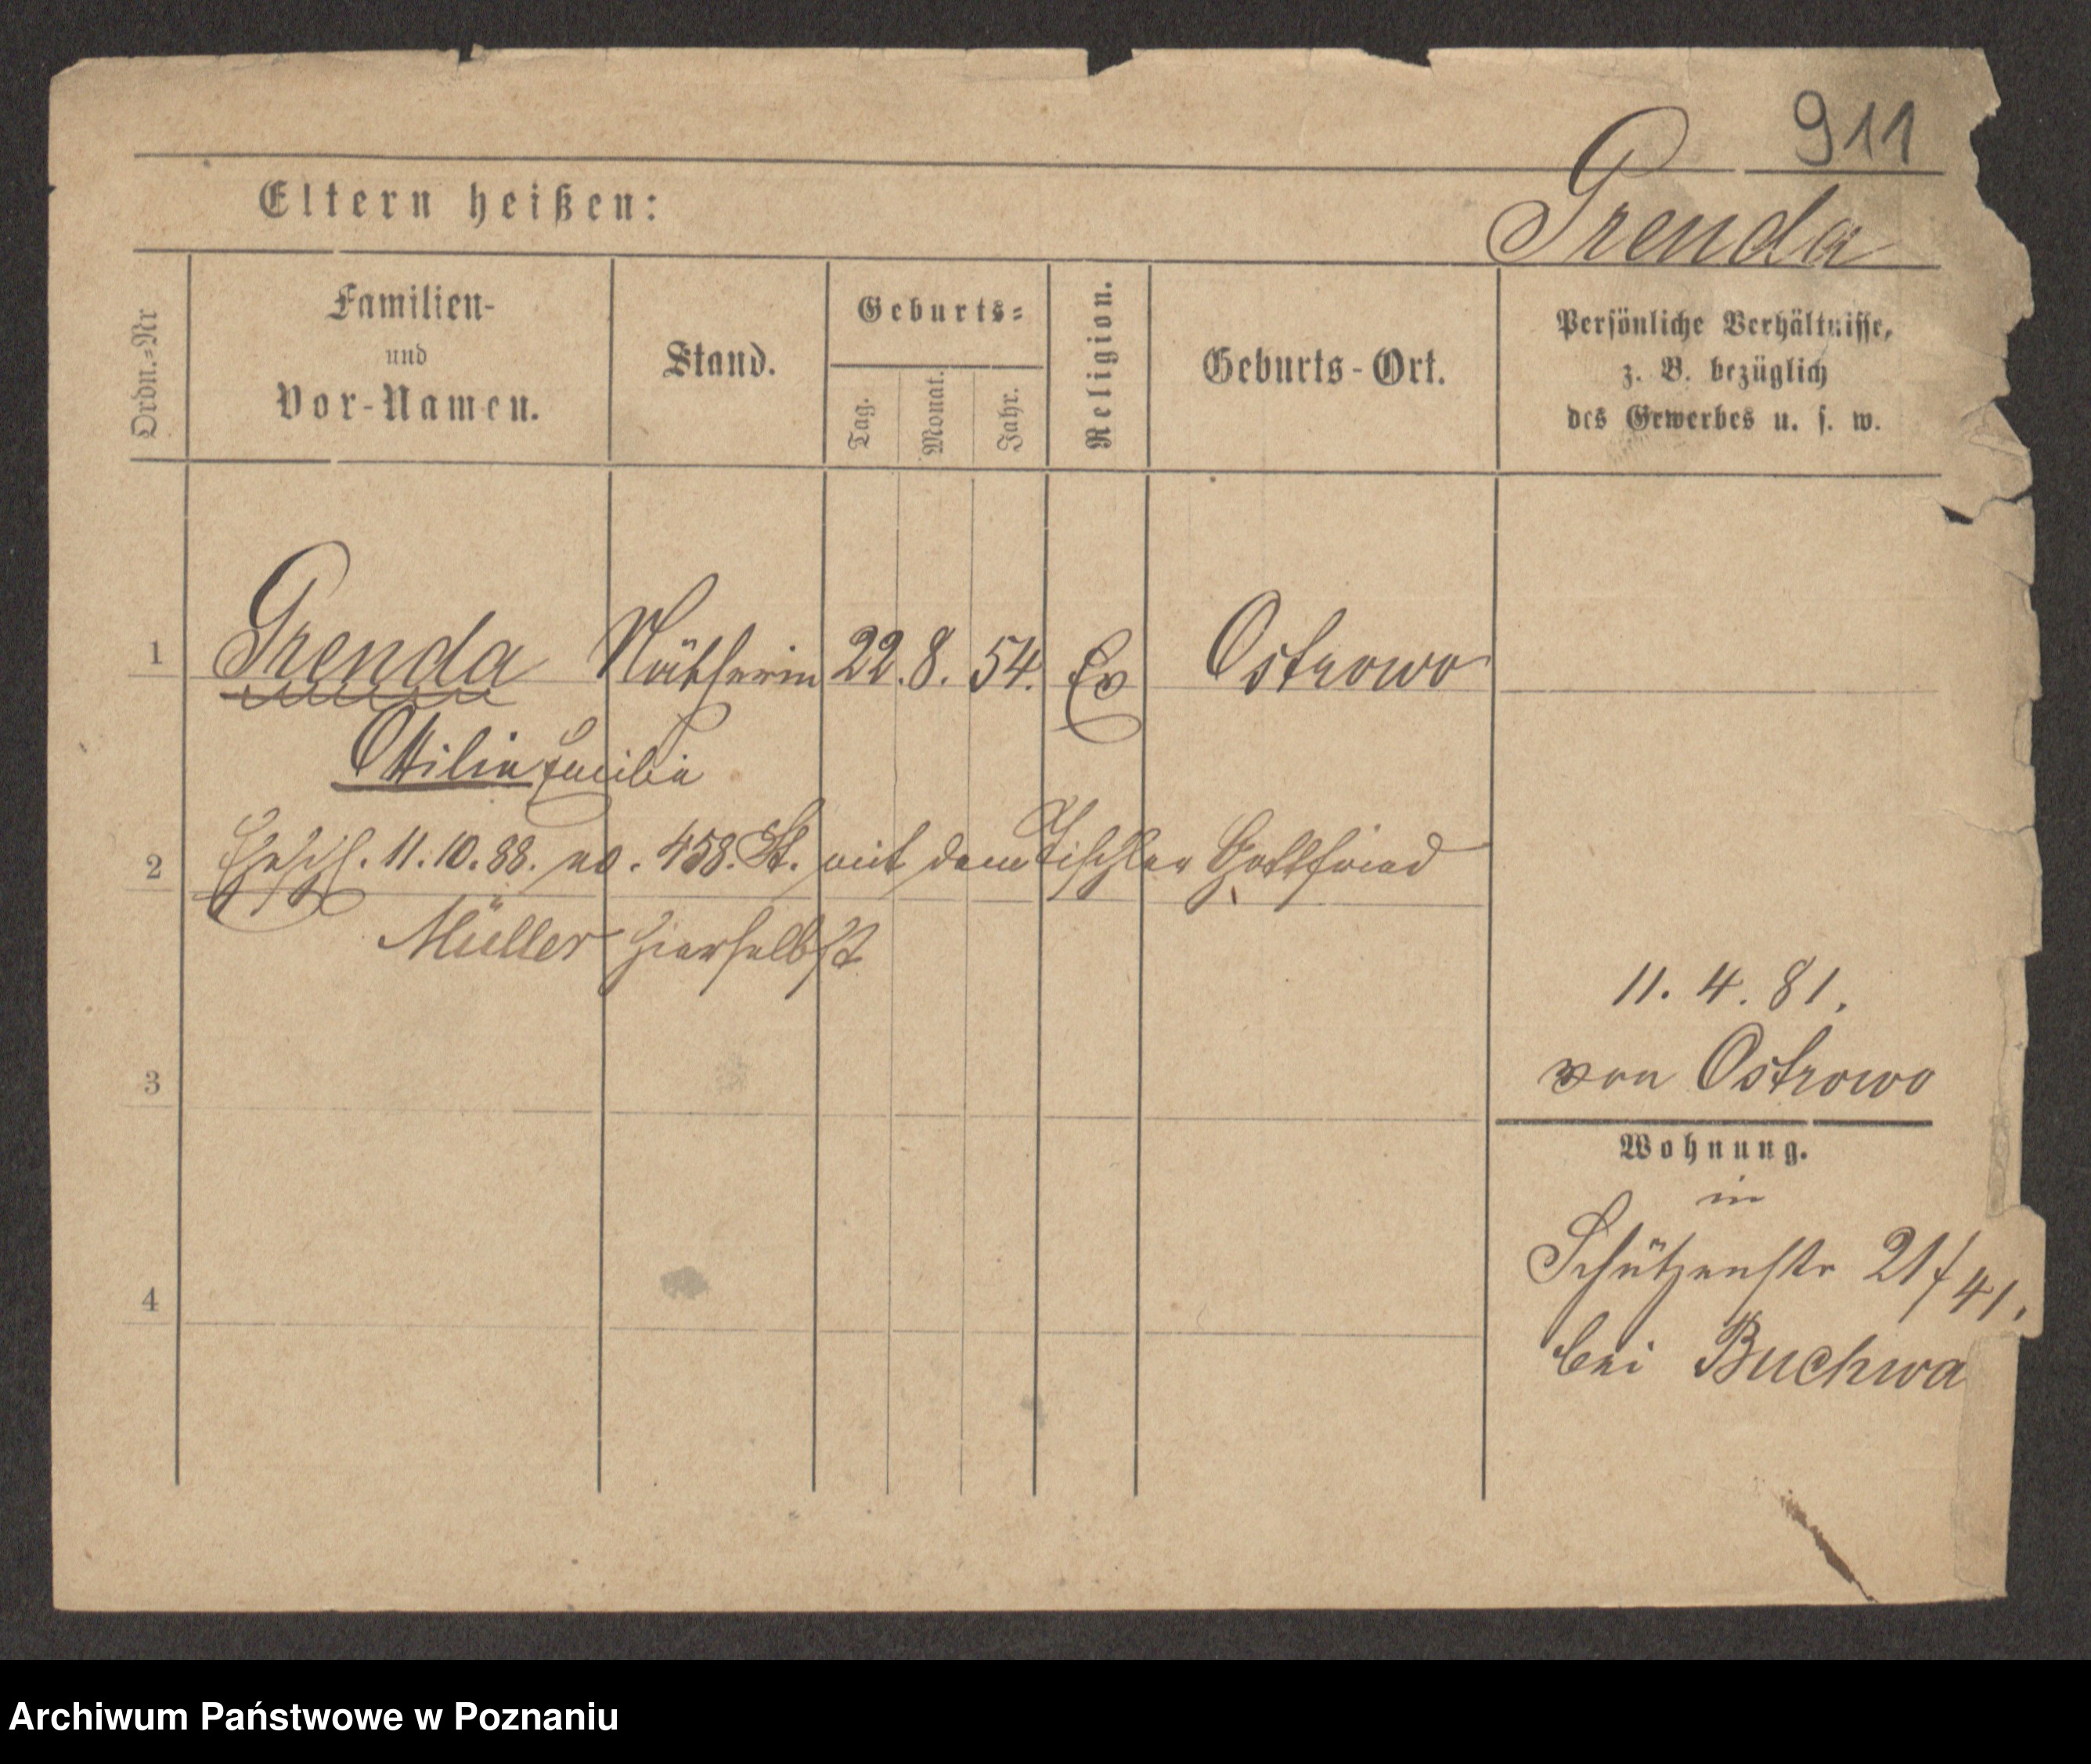 911
Eltern heißen:
Grenda
Ordn.=Nr
Familien-
und
Vor-Namen.
Stand.
Geburts=
Tag.
Monat.
Jahr.
Religion.
Geburts-Ort.
Persönliche Verhältnisse,
z. B. bezüglich
des Gewerbes u. s. w.
1 Grenda Nätherin 22. 8. 54. Ev Ostrowo
Ottilie Emilie
2 Ehesch. 11.10.88. no. 458. St. mit dem Tischler Gottfried
Müller hierselbst
11. 4. 81.
3 von Ostrowo
Wohnung.
in
Schützenstr 21/41.
4
bei Buchwa
Archiwum Państwowe w Poznaniu